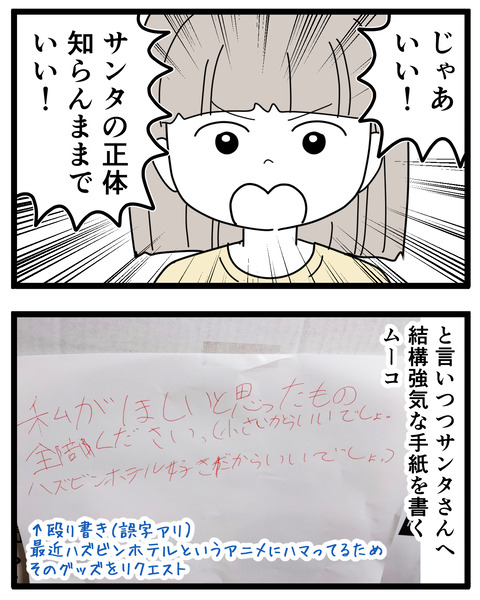 じゃあ
いい！
サンタの正体
知らんままで
いい！
と言いつつサンタさんへ
結構強気な手紙を書く
ムーコ
私がほしいと思ったもの
全部ください。(小さいからいいでしょ。
ハズビンホテル好きだからいいでしょ。)
↑殴り書き(誤字アリ)
最近ハズビンホテルというアニメにハマってるため
そのグッズをリクエスト